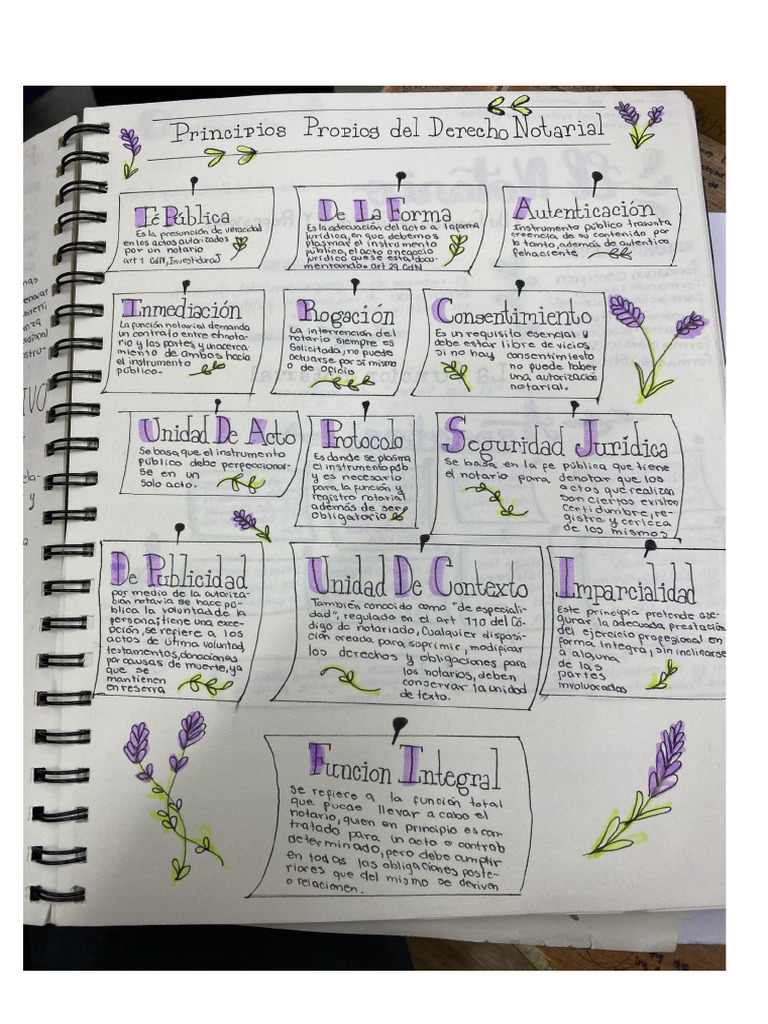 Principios Propios del Derecho Notarial
Fé Pública
Es la presunción de veracidad
en los actos autorizados
por un notario
art 1 CdN, Investidura J
De La Forma
Es la adecuación del acto a la forma
jurídica, en que debemos
plasmar el instrumento
público, el acto o negocio
jurídico que se está docu-
mentando. art 29 CdN
Autenticación
Instrumento público trasunta
creencia de su contenido por
lo tanto, además de autentico
fehaciente
Inmediación
La función notarial demanda
un contralo entre el nota-
rio y las partes y un acerca
miento de ambos hacia
el instrumento
público.
Rogación
La intervención del
notario siempre es
Solicitada, no puede
actuarse por sí mismo
o de oficio
Consentimiento
Es un requisito esencial y
debe estar libre de vicios
si no hay consentimiento
no puede haber
una autorización
notarial.
Unidad De Acto
Se basa que el instrumento
público debe perfeccionar-
se en un
solo acto.
Protocolo
Es donde se plasma
el instrumento púb
y es necesario
para la función y
registro notarial
además de ser
obligatorio
Seguridad Jurídica
Se basa en la fe pública que tiene
el notario para denotar que los
actos que realizan
son ciertos existen
certidumbre, re-
gistro y certeza
de los mismos
De Publicidad
por medio de la autoriza-
ción notarial se hace pú-
blica la voluntad de la
persona; tiene una exce-
pción, se refiere a los
actos de útima voluntad,
testamentos, donaciones
por causas de muerte, ya
que se
mantienen
en reserva
Unidad De Contexto
También conocido como "de especiali-
dad", regulado en el art 110 del Có-
digo de notariado, Cualquier disposi-
ción creada para suprimir, modificar
los derechos y obligaciones para
los notarios, deben
conservar la unidad
de texto.
Imparcialidad
Este principio pretende ase-
gurar la adecuada prestación
del ejercicio profesional en
forma íntegra, sin inclinarse
a alguna
de las
partes
involucradas
Funcion Integral
Se refiere a la función total
que puede llevar a cabo el
notario, quien en principio es con
tratado para un acto o contrato
determinado, pero debe cumplir
en todas las obligaciones poste-
riores que del mismo se deriven
o relacionen.